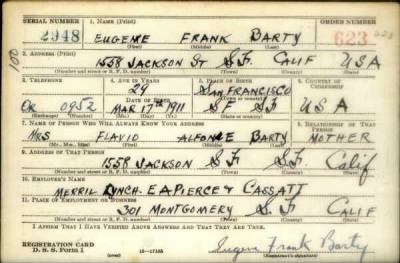 SERIAL NUMBER 1. NAME (Print) ORDER NUMBER
2948 EUGENE FRANK BARTY 623
(First) (Middle) (Last)
2. ADDRESS (Print)
1558 JACKSON ST S.F. CALIF USA
(Number and street or R. F. D. number) (Town) (County) (State)
3. TELEPHONE 4. AGE IN YEARS 5. PLACE OF BIRTH 6. COUNTRY OF CITIZENSHIP
29 SAN FRANCISCO
DATE OF BIRTH (Town or county)
OR 0952 MAR 17th 1911 SF SF USA
(Exchange) (Number) (Mo.) (Day) (Yr.) (State or country)
7. NAME OF PERSON WHO WILL ALWAYS KNOW YOUR ADDRESS 8. RELATIONSHIP OF THAT PERSON
MRS FLAVIO ALFONCE BARTY MOTHER
(Mr., Mrs., Miss) (First) (Middle) (Last)
9. ADDRESS OF THAT PERSON
1558 JACKSON S.F. S.F. Calif
(Number and street or R. F. D. number) (Town) (County) (State)
10. EMPLOYER'S NAME
MERRIL LYNCH. E.A PIERCE & CASSATT
11. PLACE OF EMPLOYMENT OR BUSINESS
301 MONTGOMERY S.F. CALIF
(Number and street or R. F. D. number) (Town) (County) (State)
I AFFIRM THAT I HAVE VERIFIED ABOVE ANSWERS AND THAT THEY ARE TRUE.
REGISTRATION CARD
D. S. S. Form 1 (over) 16—17105 Eugene Frank Barty
(Registrant's signature)